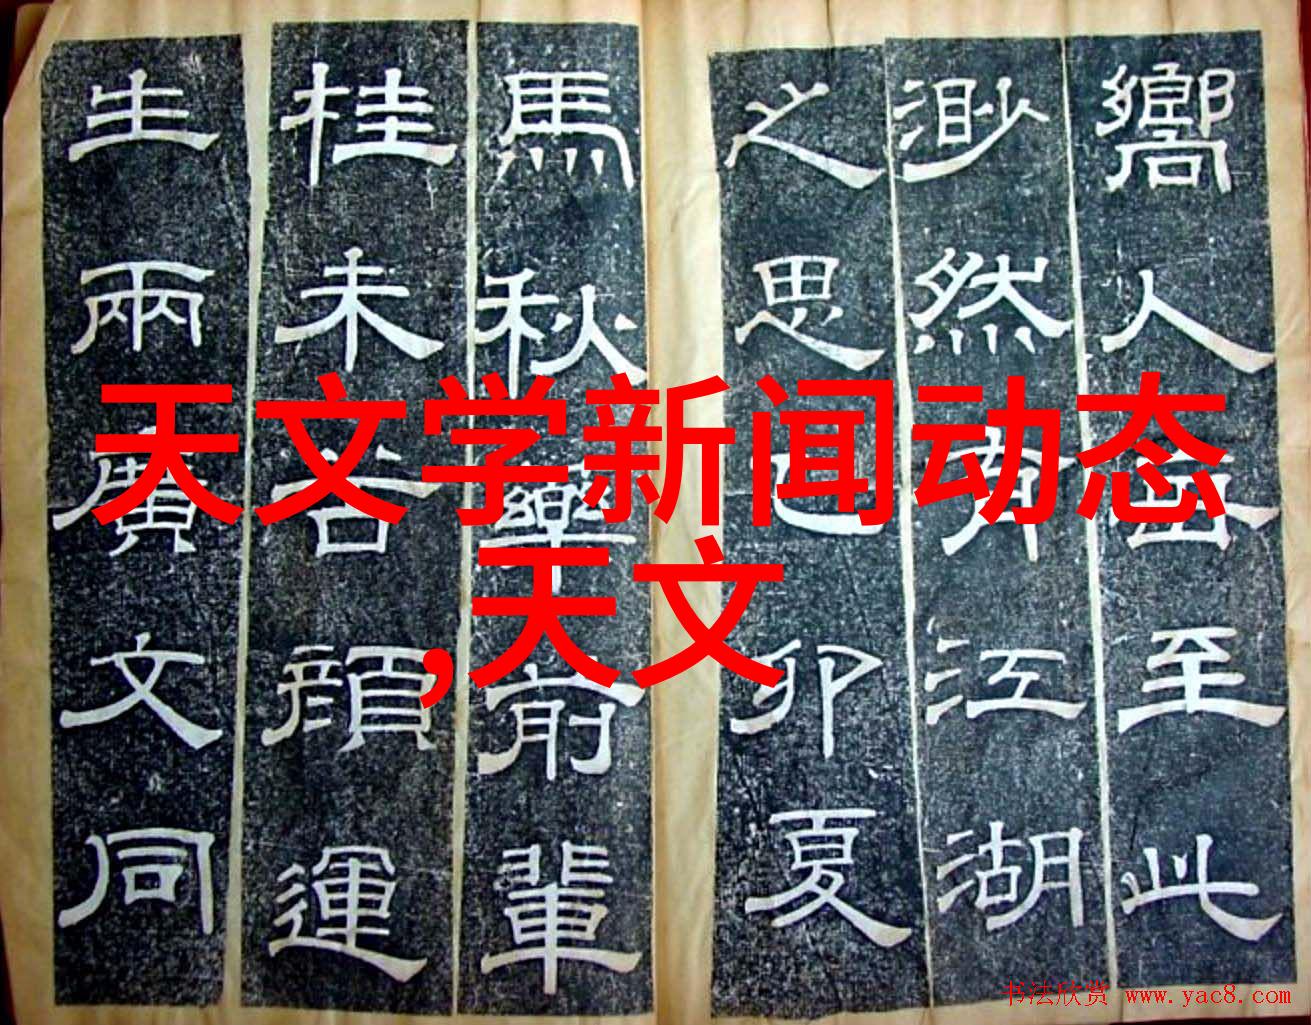 嚮人至此
渺然有江湖
之思卯夏
馬秋藥前輩
桂未谷顏運
生兩廣文同
天文学新闻动态
,天文
书法欣赏 www.yac8.com